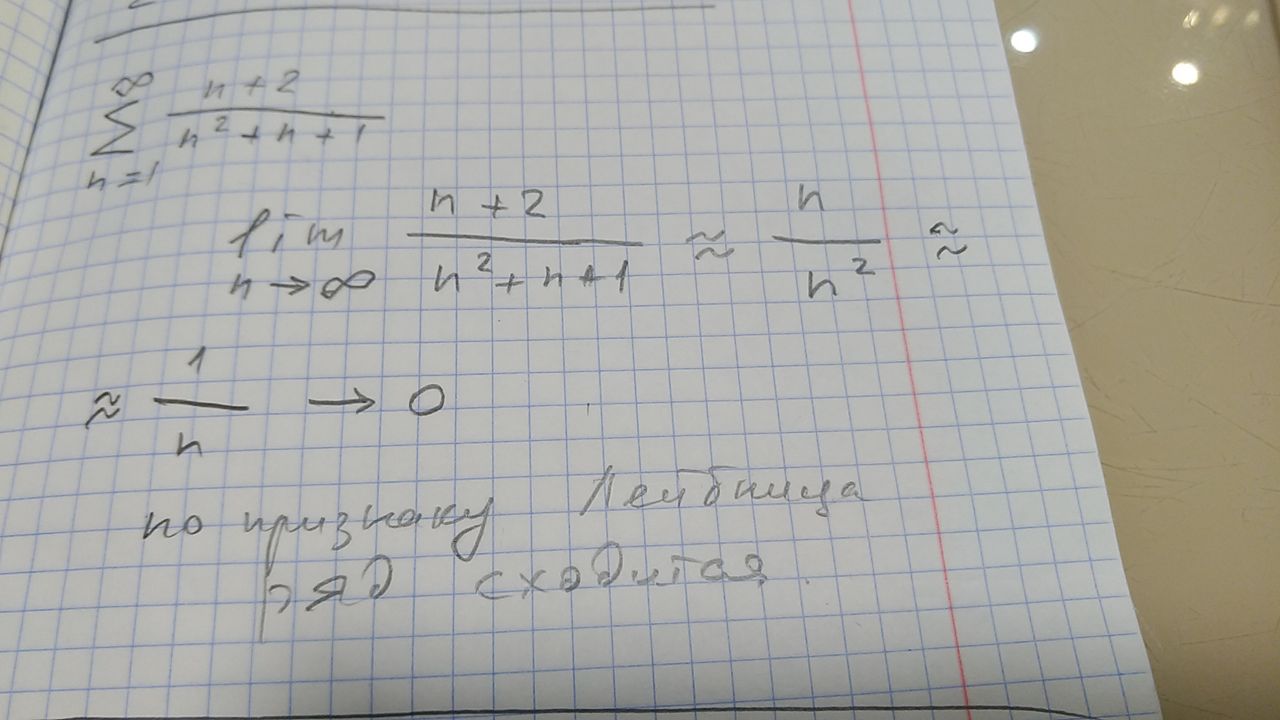 ∞
∑ n + 2 / n² + n + 1
n = 1
lim n + 2 / n² + n + 1 ≈ n / n² ≈
n → ∞
≈ 1 / n → 0
по признаку Лейбница
ряд сходится.